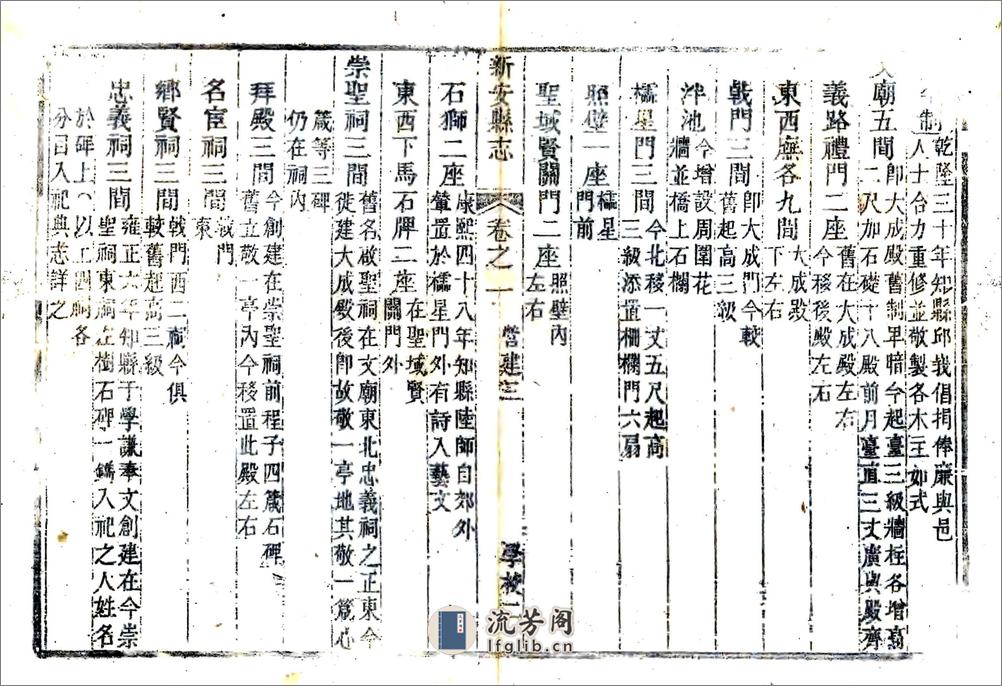 今制乾隆三十年知縣邱峩倡捐俸廉與邑
人士合力重修並敬製各木主如式
文廟五間即大成殿舊制卑暗今起臺三級牆柱各增高
二尺加石礎十八殿前月臺直三丈廣與殿齊
義路禮門二座舊在大成殿左右
今移後殿左右
東西廡各九間大成殿
下左右
戟門三間即大成門今較
舊起高三級
泮池今增設周圍花
牆並橋上石欄
櫺星門三間今北移一丈五尺起高
三級添置柵欄門六扇
照壁一座櫺星
門前
聖域賢關門二座照壁內
左右
新安縣志
卷之一
營建三
學校一
石獅二座康熙四十八年知縣陸師自郊外
輦置於櫺星門外有詩入藝文
東西下馬石牌二座在聖域賢
關門外
崇聖祠三間舊名啟聖祠在文廟東北忠義祠之正東今
徙建大成殿後即故敬一亭地其敬一箴心
箴等三碑
仍在祠內
拜殿三間今創建在崇聖祠前程子四箴石碑
舊立敬一亭內今移置此殿左右
名宦祠三間戟門
東
鄉賢祠三間戟門西二祠今俱
較舊起高三級
忠義祠三間雍正六年知縣于學謙奉文創建在今崇
聖祠東祠左樹石碑一鐫入祀之人姓名
於碑上○以上四祠各
分曰入祀典志詳之
流芳阁
lfglib.cn